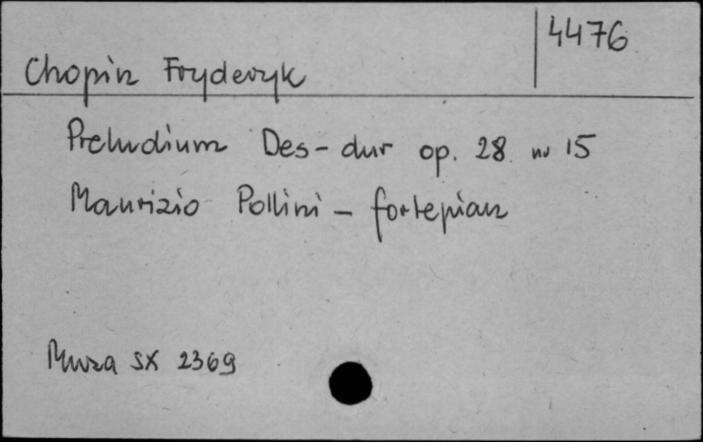 4476
Chopin Fryderyk
Preludium Des-dur op. 28 nr 15
Maurizio Pollini - fortepian
Muza SX 2369